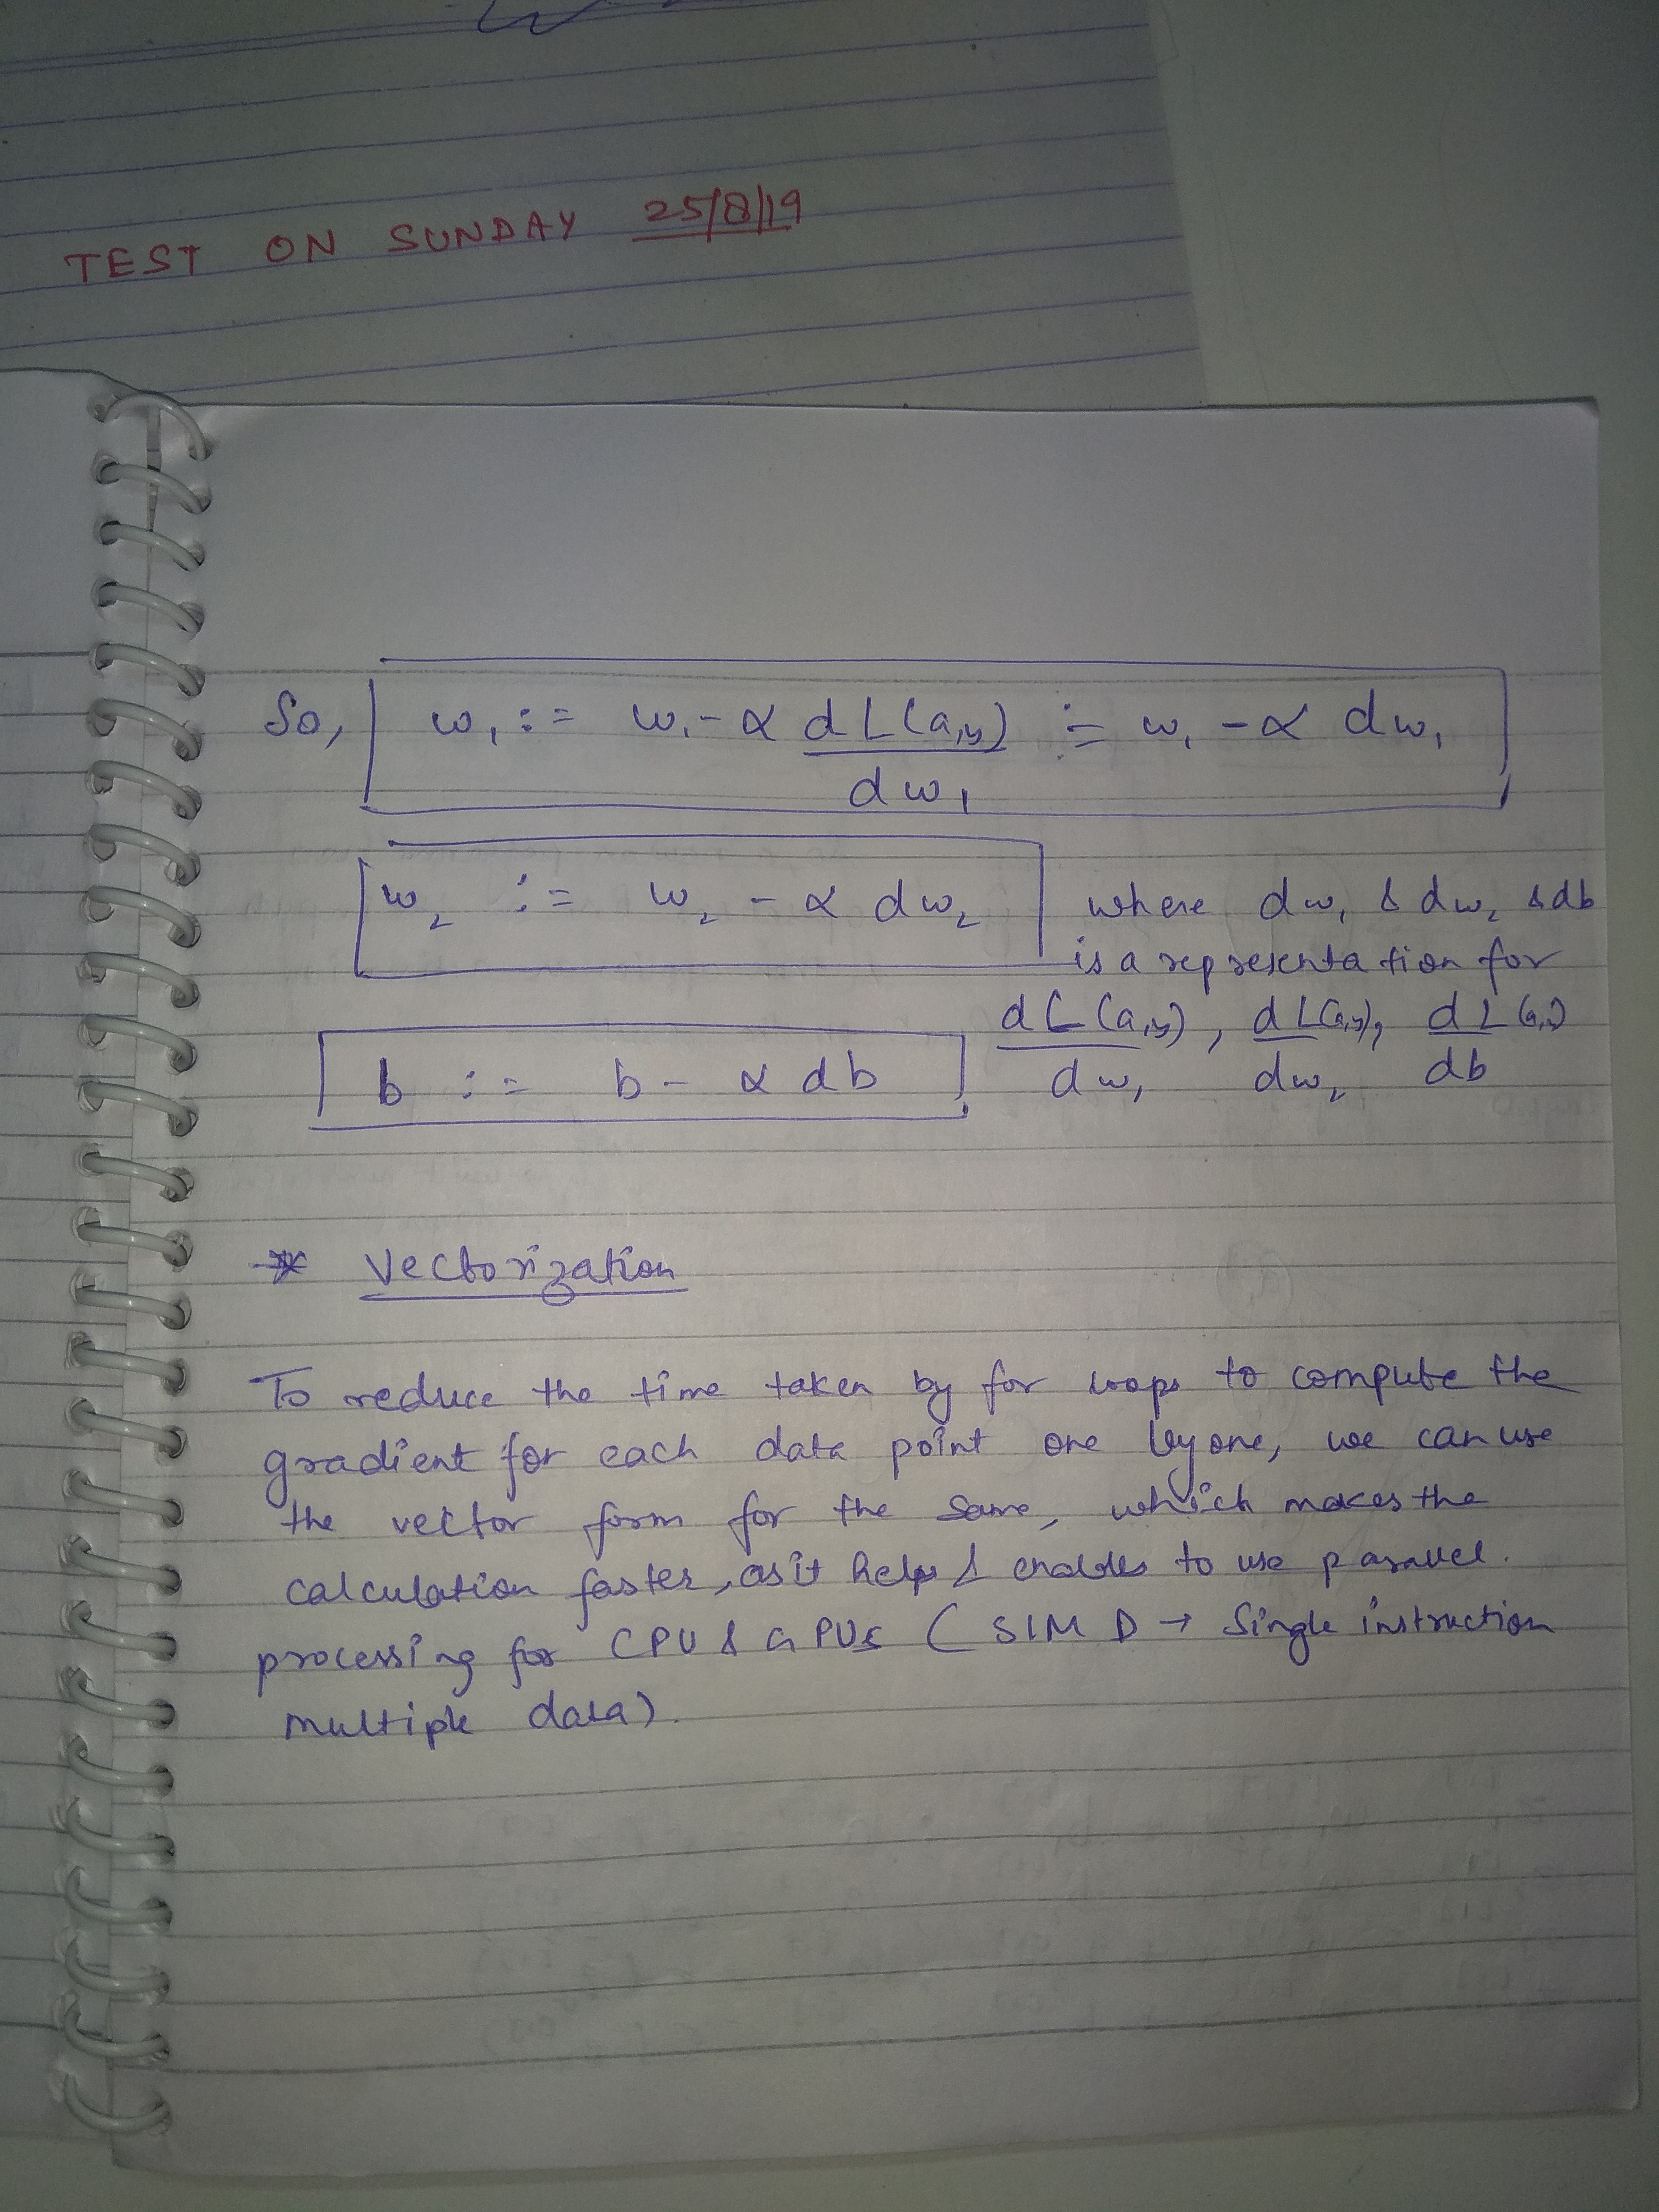 TEST ON SUNDAY 25/8/19
So, w₁ := w₁ - α dL(a,y)/dw₁ := w₁ - α dw₁
w₂ := w₂ - α dw₂
where dw₁ & dw₂ & db
is a representation for
dL(a,y)/dw₁, dL(a,y)/dw₂, dL(a,y)/db
b := b - α db
* Vectorization
To reduce the time taken by for loops to compute the
gradient for each data point one by one, we can use
the vector form for the same, which makes the
calculation faster, as it helps & enables to use parallel.
processing for CPU & GPUs (SIMD → Single instruction
multiple data).